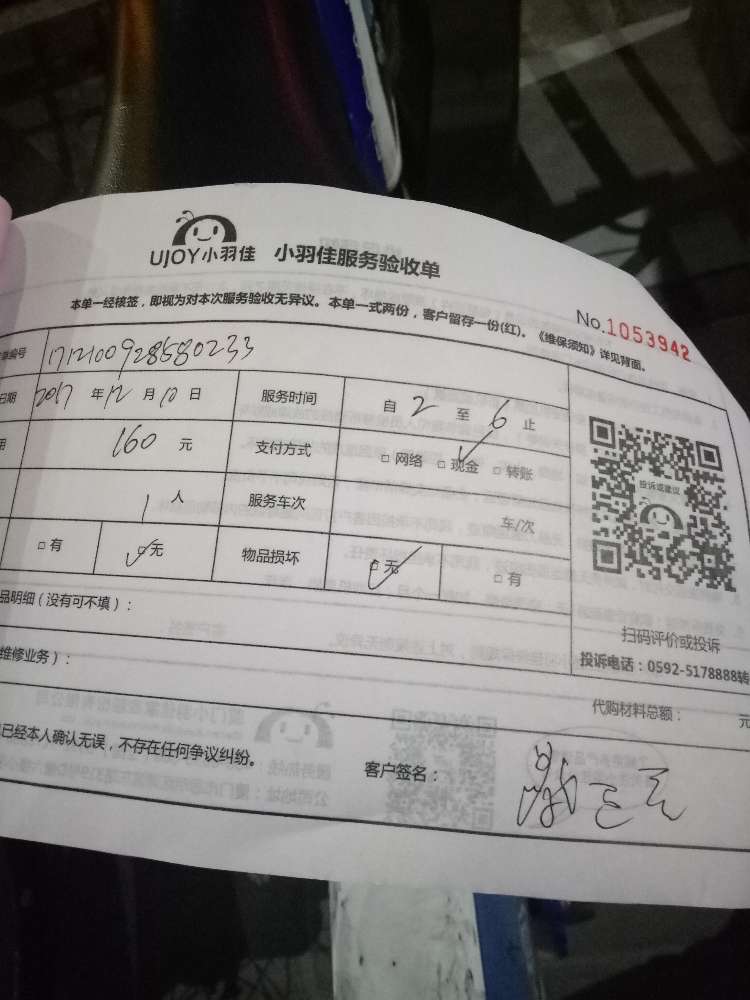 UJOY小羽佳 小羽佳服务验收单
No.1053942
本单一经核签，即视为对本次服务验收无异议。本单一式两份，客户留存一份(红)。《维保须知》详见背面。
单编号 1712100928580233
日期 2017 年 12 月 10 日 服务时间 自 2 至 6 止
用 160 元 支付方式 □ 网络 □ 现金 □ 转账
1 人 服务车次 车/次
□ 有 □ 无 物品损坏 □ 无 □ 有
投诉或建议
扫码评价或投诉
投诉电话：0592-5178888转
品明细（没有可不填）：
维修业务）：
代购材料总额： 元
已经本人确认无误，不存在任何争议纠纷。
客户签名：